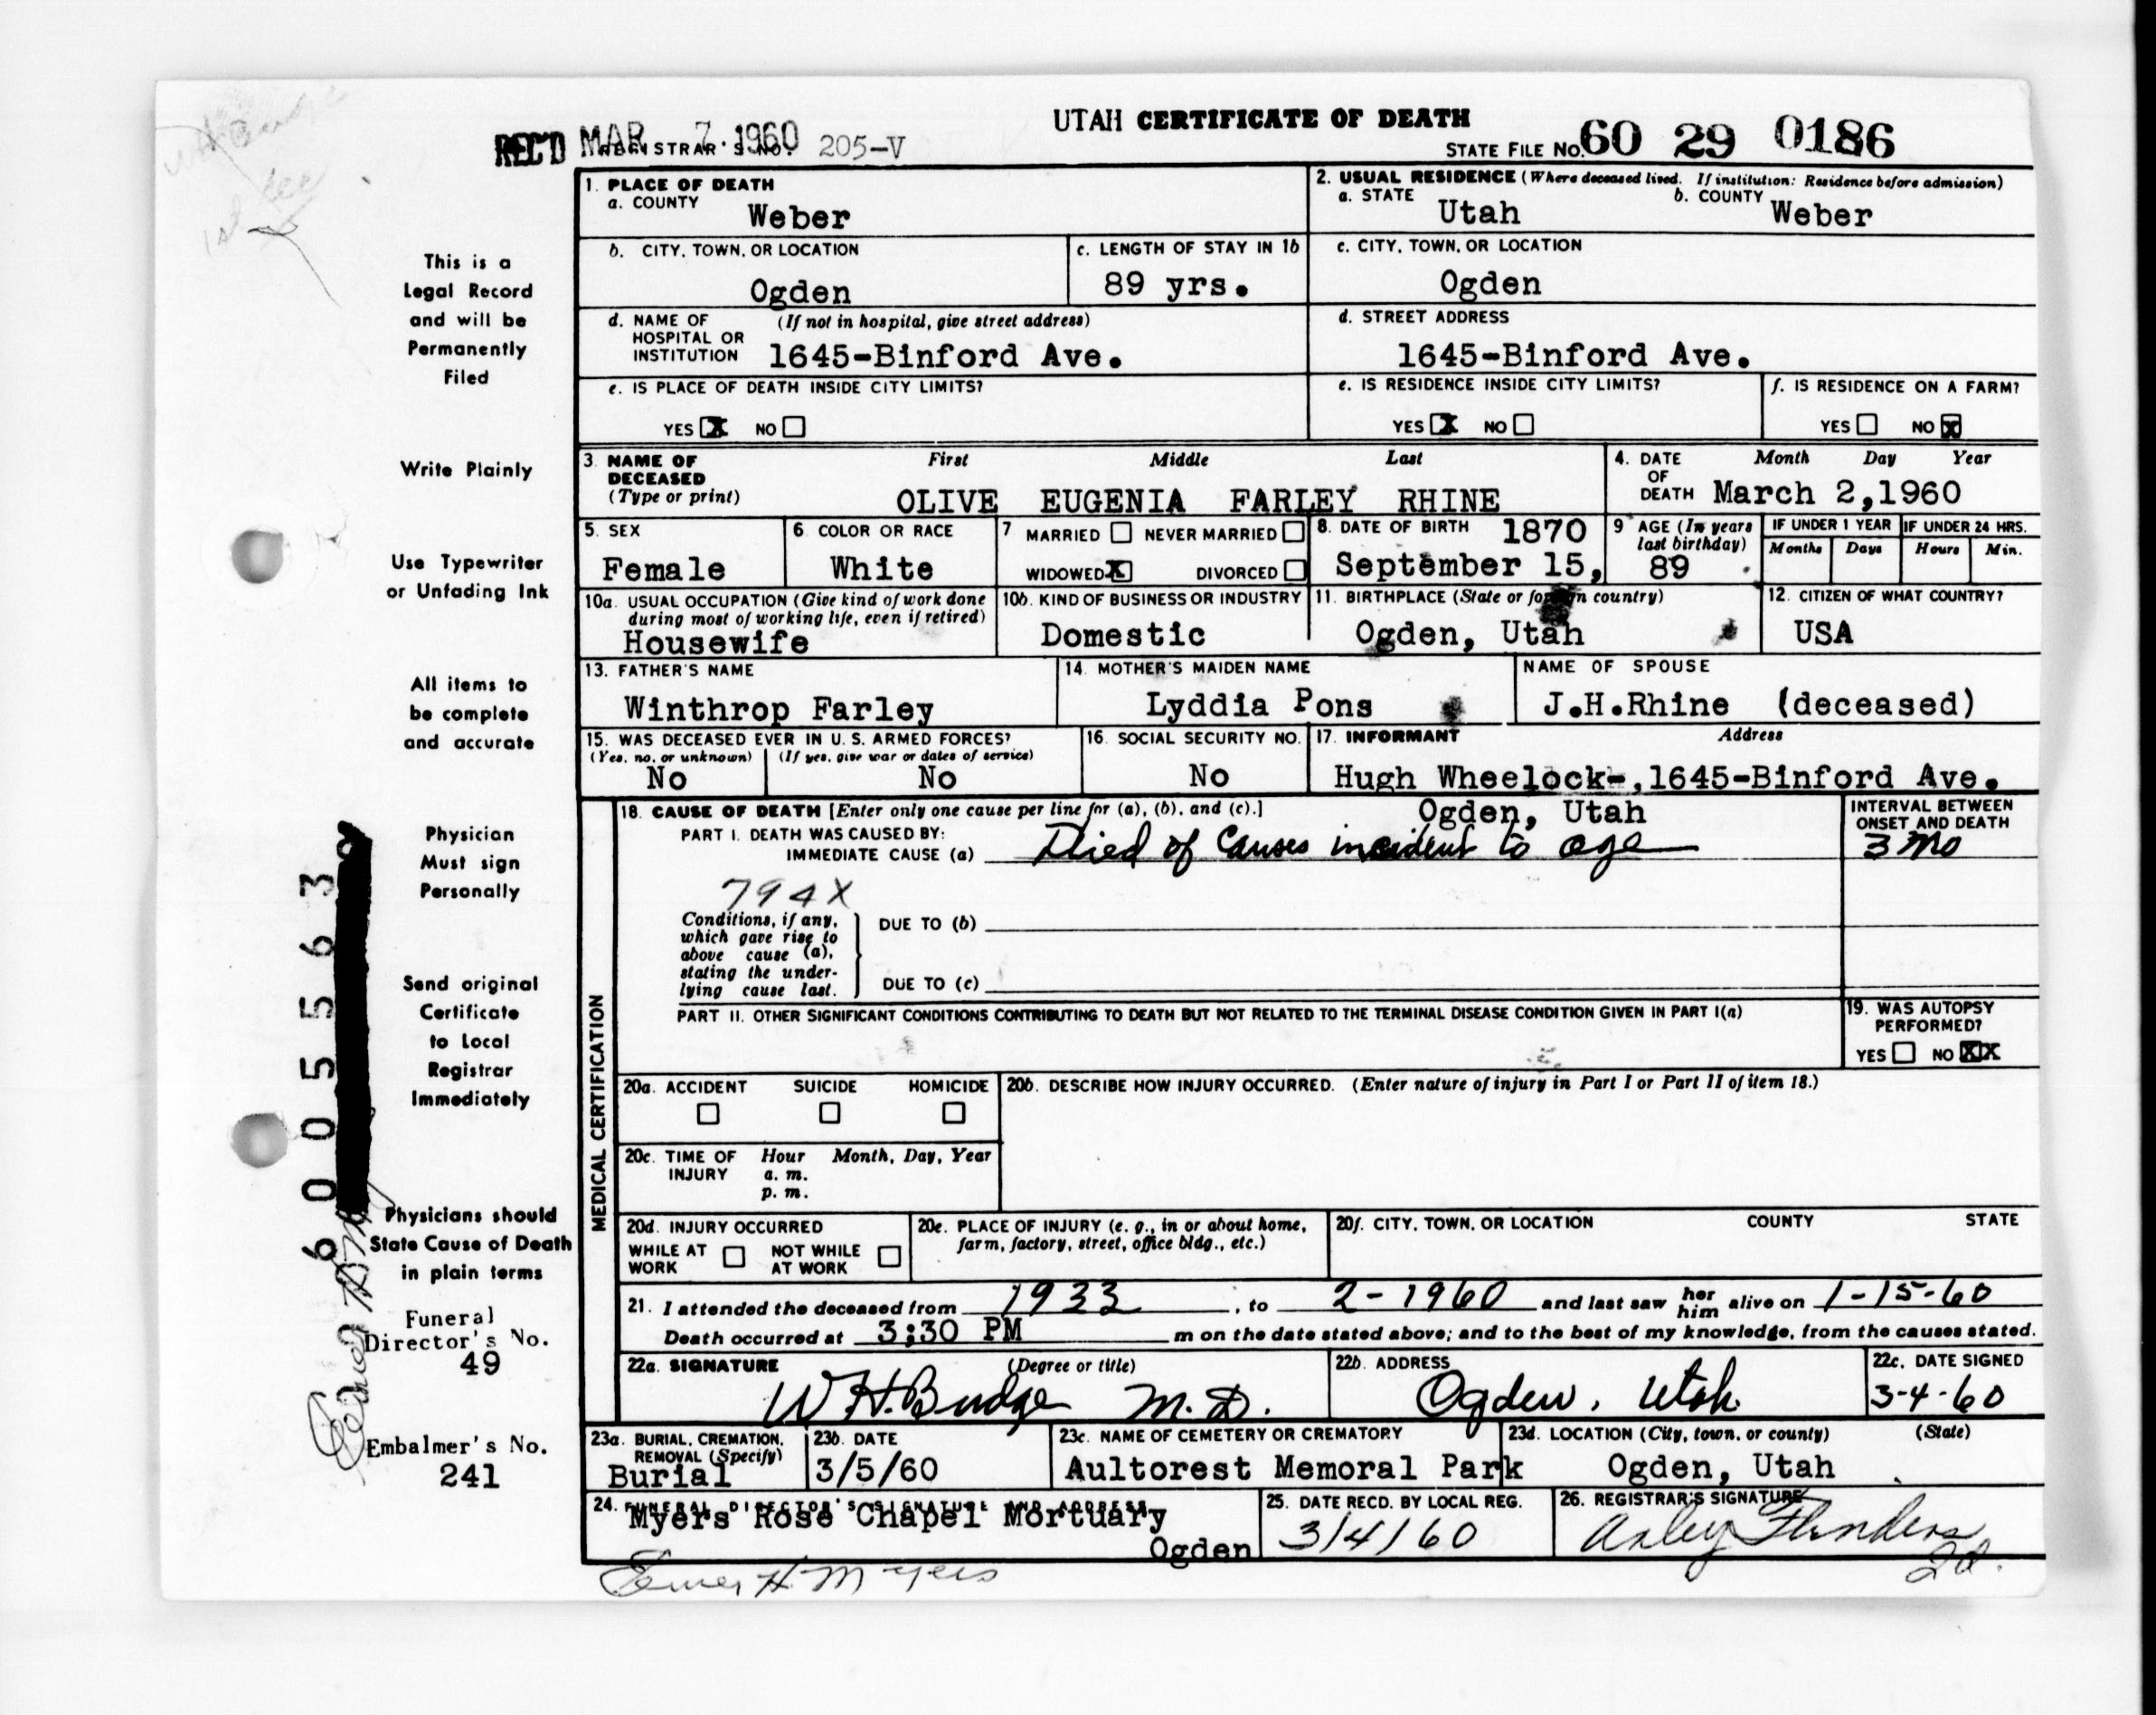 UTAH CERTIFICATE OF DEATH
REC'D MAR 7 1960 REGISTRAR'S NO. 205-V
STATE FILE NO. 60 29 0186
1. PLACE OF DEATH
a. COUNTY
Weber
2. USUAL RESIDENCE (Where deceased lived. If institution: Residence before admission)
a. STATE b. COUNTY
Utah Weber
b. CITY, TOWN, OR LOCATION
Ogden
c. LENGTH OF STAY IN 1b
89 yrs.
c. CITY, TOWN, OR LOCATION
Ogden
d. NAME OF (If not in hospital, give street address)
HOSPITAL OR
INSTITUTION 1645-Binford Ave.
d. STREET ADDRESS
1645-Binford Ave.
e. IS PLACE OF DEATH INSIDE CITY LIMITS?
YES X NO
e. IS RESIDENCE INSIDE CITY LIMITS?
YES X NO
f. IS RESIDENCE ON A FARM?
YES NO X
3. NAME OF First Middle Last
DECEASED
(Type or print) OLIVE EUGENIA FARLEY RHINE
4. DATE Month Day Year
OF
DEATH March 2,1960
5. SEX
Female
6. COLOR OR RACE
White
7 MARRIED NEVER MARRIED
WIDOWED X DIVORCED
8. DATE OF BIRTH 1870
September 15,
9 AGE (In years
last birthday)
89
IF UNDER 1 YEAR IF UNDER 24 HRS.
Months Days Hours Min.
10a. USUAL OCCUPATION (Give kind of work done
during most of working life, even if retired)
Housewife
10b. KIND OF BUSINESS OR INDUSTRY
Domestic
11. BIRTHPLACE (State or foreign country)
Ogden, Utah
12. CITIZEN OF WHAT COUNTRY?
USA
13. FATHER'S NAME
Winthrop Farley
14. MOTHER'S MAIDEN NAME
Lyddia Pons
NAME OF SPOUSE
J.H.Rhine (deceased)
15. WAS DECEASED EVER IN U. S. ARMED FORCES?
(Yes, no, or unknown) (If yes, give war or dates of service)
No No
16. SOCIAL SECURITY NO.
No
17. INFORMANT Address
Hugh Wheelock-,1645-Binford Ave.
Ogden, Utah
MEDICAL CERTIFICATION
18. CAUSE OF DEATH [Enter only one cause per line for (a), (b), and (c).]
PART I. DEATH WAS CAUSED BY:
IMMEDIATE CAUSE (a) Died of Causes incident to age
INTERVAL BETWEEN
ONSET AND DEATH
3 Mo
794X
Conditions, if any,
which gave rise to
above cause (a),
stating the under-
lying cause last.
DUE TO (b)
DUE TO (c)
PART II. OTHER SIGNIFICANT CONDITIONS CONTRIBUTING TO DEATH BUT NOT RELATED TO THE TERMINAL DISEASE CONDITION GIVEN IN PART I(a)
19. WAS AUTOPSY
PERFORMED?
YES NO XX
20a. ACCIDENT SUICIDE HOMICIDE
20b. DESCRIBE HOW INJURY OCCURRED. (Enter nature of injury in Part I or Part II of item 18.)
20c. TIME OF Hour Month, Day, Year
INJURY a. m.
p. m.
20d. INJURY OCCURRED
WHILE AT WORK NOT WHILE AT WORK
20e. PLACE OF INJURY (e. g., in or about home,
farm, factory, street, office bldg., etc.)
20f. CITY, TOWN, OR LOCATION COUNTY STATE
21. I attended the deceased from 1933, to 2-1960 and last saw her him alive on 1-15-60
Death occurred at 3:30 PM m on the date stated above; and to the best of my knowledge, from the causes stated.
22a. SIGNATURE (Degree or title)
W H. Budge M.D.
22b. ADDRESS
Ogden, Utah
22c. DATE SIGNED
3-4-60
23a. BURIAL, CREMATION,
REMOVAL (Specify)
Burial
23b. DATE
3/5/60
23c. NAME OF CEMETERY OR CREMATORY
Aultorest Memoral Park
23d. LOCATION (City, town, or county) (State)
Ogden, Utah
24. FUNERAL DIRECTOR'S SIGNATURE AND ADDRESS
Myers Rose Chapel Mortuary
Ogden
25. DATE RECD. BY LOCAL REG.
3/4/60
26. REGISTRAR'S SIGNATURE
Arley Flinders
H Myers
This is a
Legal Record
and will be
Permanently
Filed
Write Plainly
Use Typewriter
or Unfading Ink
All items to
be complete
and accurate
Physician
Must sign
Personally
Send original
Certificate
to Local
Registrar
Immediately
Physicians should
State Cause of Death
in plain terms
Funeral
Director's No.
49
Embalmer's No.
241
6005563